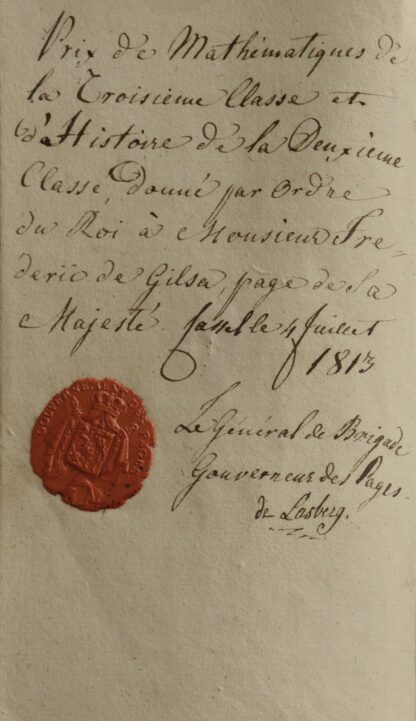 Prix de Mathématiques de
la Troisieme Classe et
d'Histoire de la Deuxieme
Classe, donné par Ordre
du Roi à Monsieur Fre-
deric de Gilsa, page de Sa
Majesté. Cassel le 4 Juillet
1813
Le Général de Brigade
Gouverneur des Pages
de Lasberg.